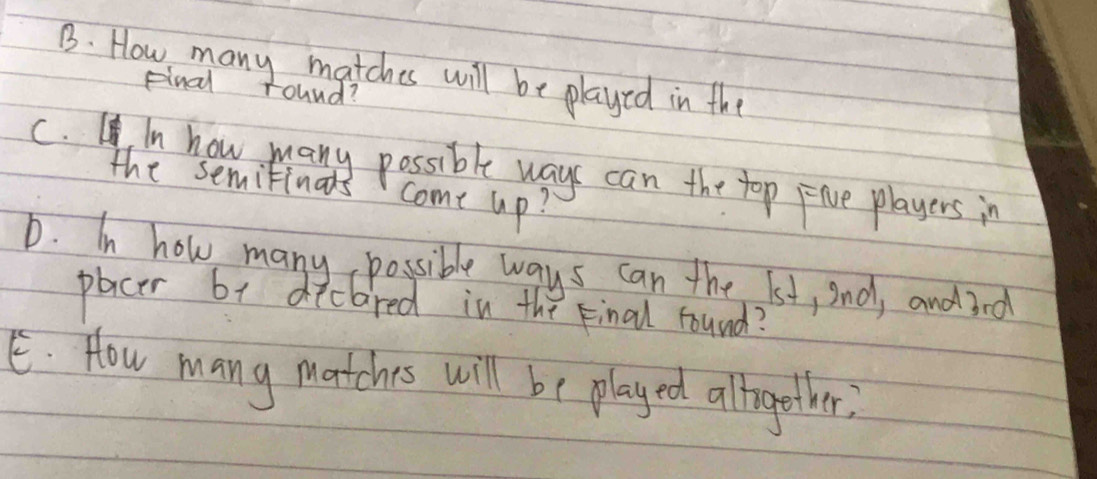 B. How many matches will be played in the
Final round?
C. In how many possible ways can the top Five players in
the semifinals come up?
D. In how many possible ways can the 1st, 2nd, and 3rd
placer be declared in the Final round?
E. How many matches will be played altogether?